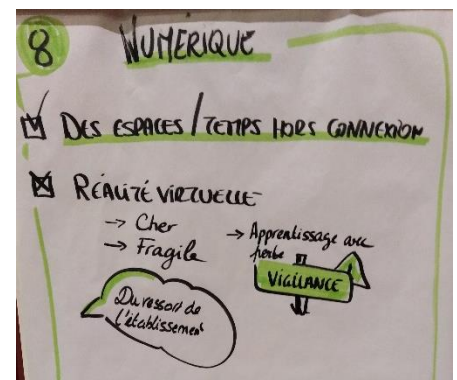 8 NUMERIQUE
DES ESPACES / TEMPS HORS CONNEXION
RÉALITÉ VIRTUELLE
→ Cher
→ Fragile
→ Apprentissage avec
perte
VIGILANCE
Du ressort de
l'établissement